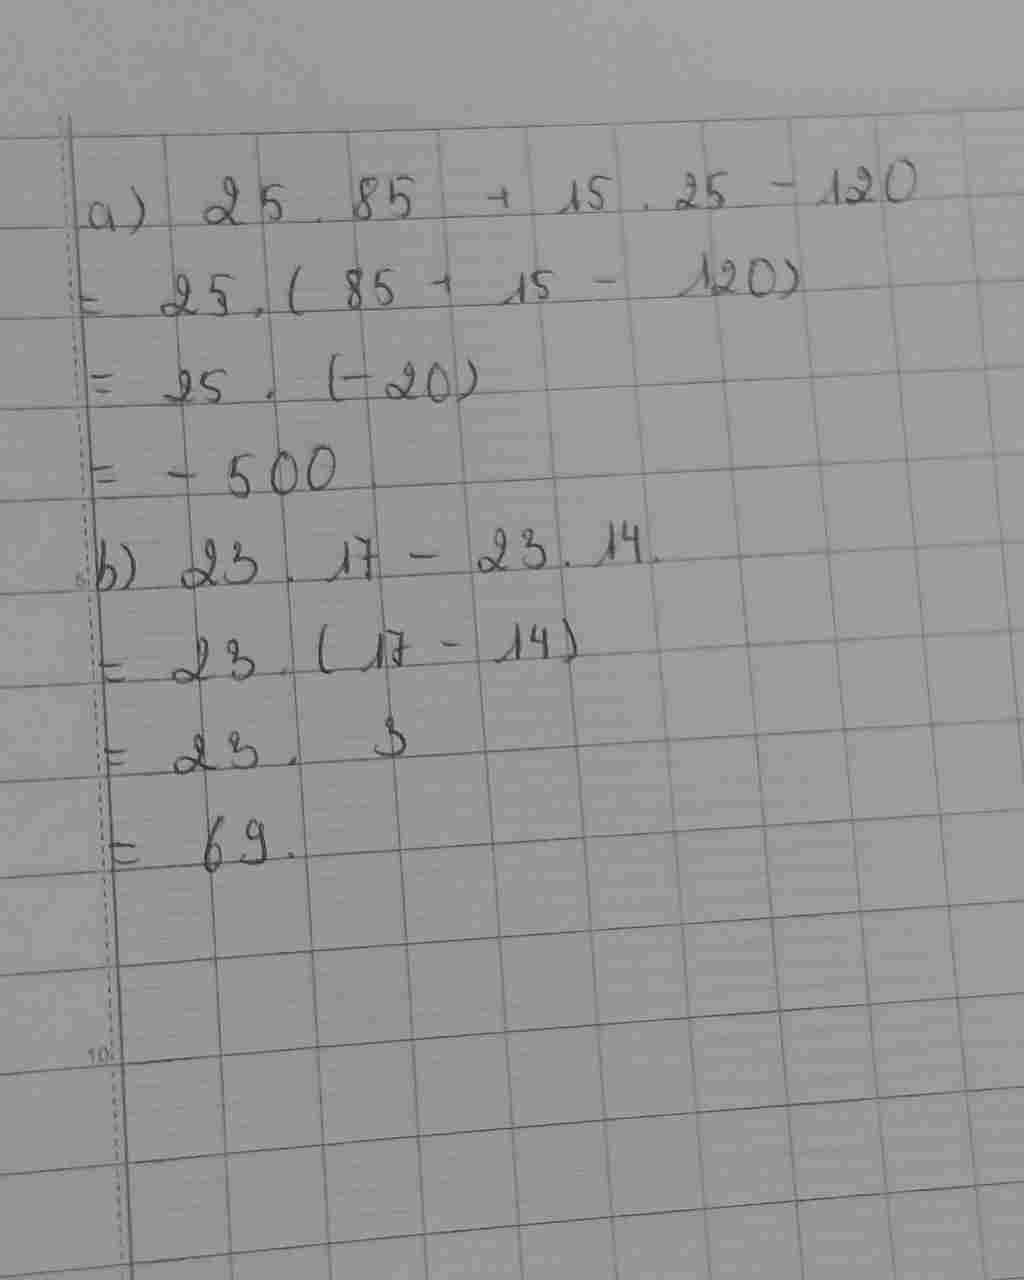 a) 25 . 85 + 15 . 25 - 120
= 25 . ( 85 + 15 - 120)
= 25 . (- 20)
= - 500
b) 23 . 17 - 23 . 14.
= 23 . ( 17 - 14)
= 23 . 3
= 69.
10